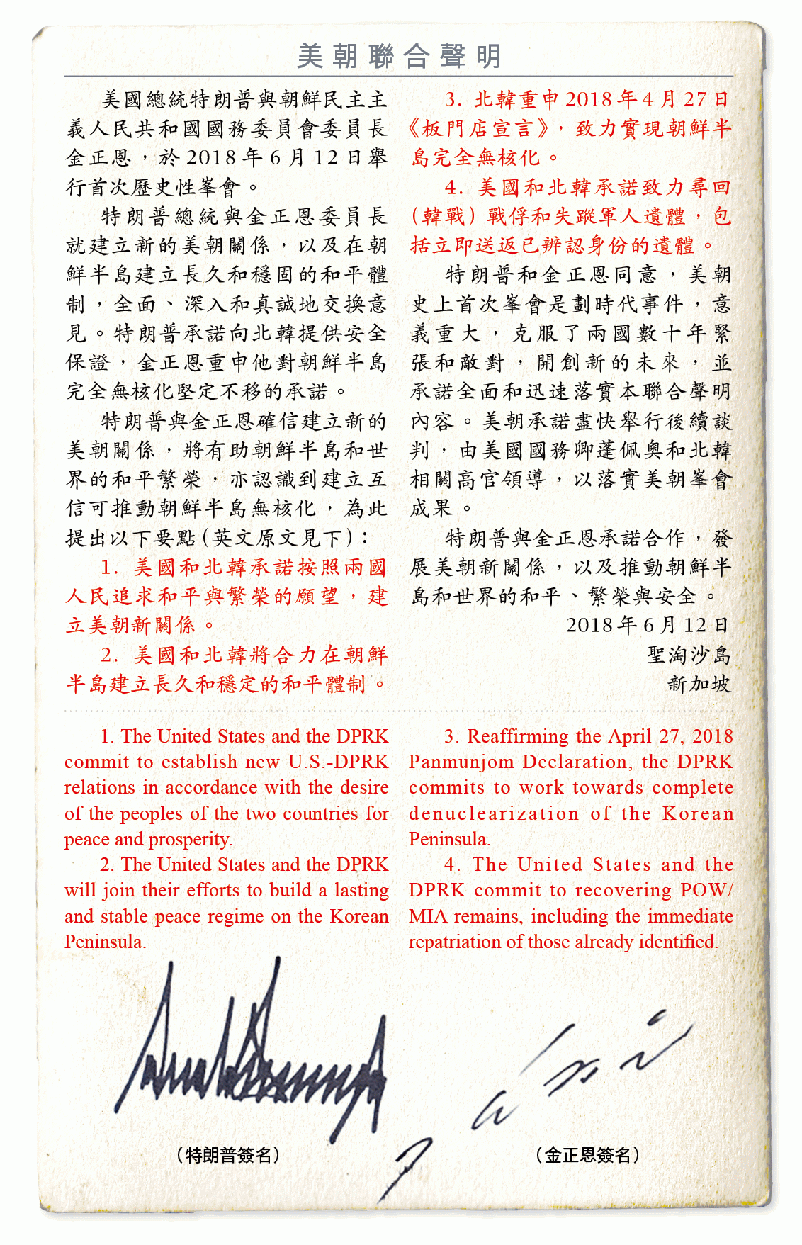 美朝聯合聲明
美國總統特朗普與朝鮮民主主
義人民共和國國務委員會委員長
金正恩，於2018年6月12日舉
行首次歷史性峯會。
特朗普總統與金正恩委員長
就建立新的美朝關係，以及在朝
鮮半島建立長久和穩固的和平體
制，全面、深入和真誠地交換意
見。特朗普承諾向北韓提供安全
保證，金正恩重申他對朝鮮半島
完全無核化堅定不移的承諾。
特朗普與金正恩確信建立新的
美朝關係，將有助朝鮮半島和世
界的和平繁榮，亦認識到建立互
信可推動朝鮮半島無核化，為此
提出以下要點(英文原文見下)：
1. 美國和北韓承諾按照兩國
人民追求和平與繁榮的願望，建
立美朝新關係。
2. 美國和北韓將合力在朝鮮
半島建立長久和穩定的和平體制。
3. 北韓重申2018年4月27日
《板門店宣言》，致力實現朝鮮半
島完全無核化。
4. 美國和北韓承諾致力尋回
(韓戰)戰俘和失蹤軍人遺體，包
括立即送返已辨認身份的遺體。
特朗普和金正恩同意，美朝
史上首次峯會是劃時代事件，意
義重大，克服了兩國數十年緊
張和敵對，開創新的未來，並
承諾全面和迅速落實本聯合聲明
內容。美朝承諾盡快舉行後續談
判，由美國國務卿蓬佩奧和北韓
相關高官領導，以落實美朝峯會
成果。
特朗普與金正恩承諾合作，發
展美朝新關係，以及推動朝鮮半
島和世界的和平、繁榮與安全。
2018年6月12日
聖淘沙島
新加坡
1. The United States and the DPRK
commit to establish new U.S.-DPRK
relations in accordance with the desire
of the peoples of the two countries for
peace and prosperity.
2. The United States and the DPRK
will join their efforts to build a lasting
and stable peace regime on the Korean
Peninsula.
3. Reaffirming the April 27, 2018
Panmunjom Declaration, the DPRK
commits to work towards complete
denuclearization of the Korean
Peninsula.
4. The United States and the
DPRK commit to recovering POW/
MIA remains, including the immediate
repatriation of those already identified.
(特朗普簽名)
(金正恩簽名)